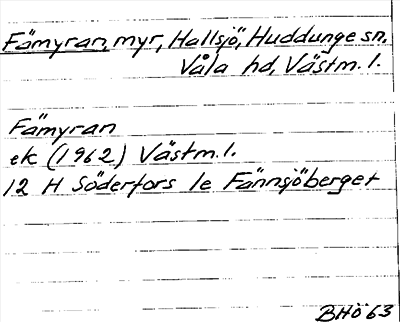 Fämyran, myr, Hallsjö, Huddunge sn,
Våla hd, Västm. l.
Fämyran
ek (1962) Västm. l.
12 H Söderfors 1e Fännsjöberget
BHö 63